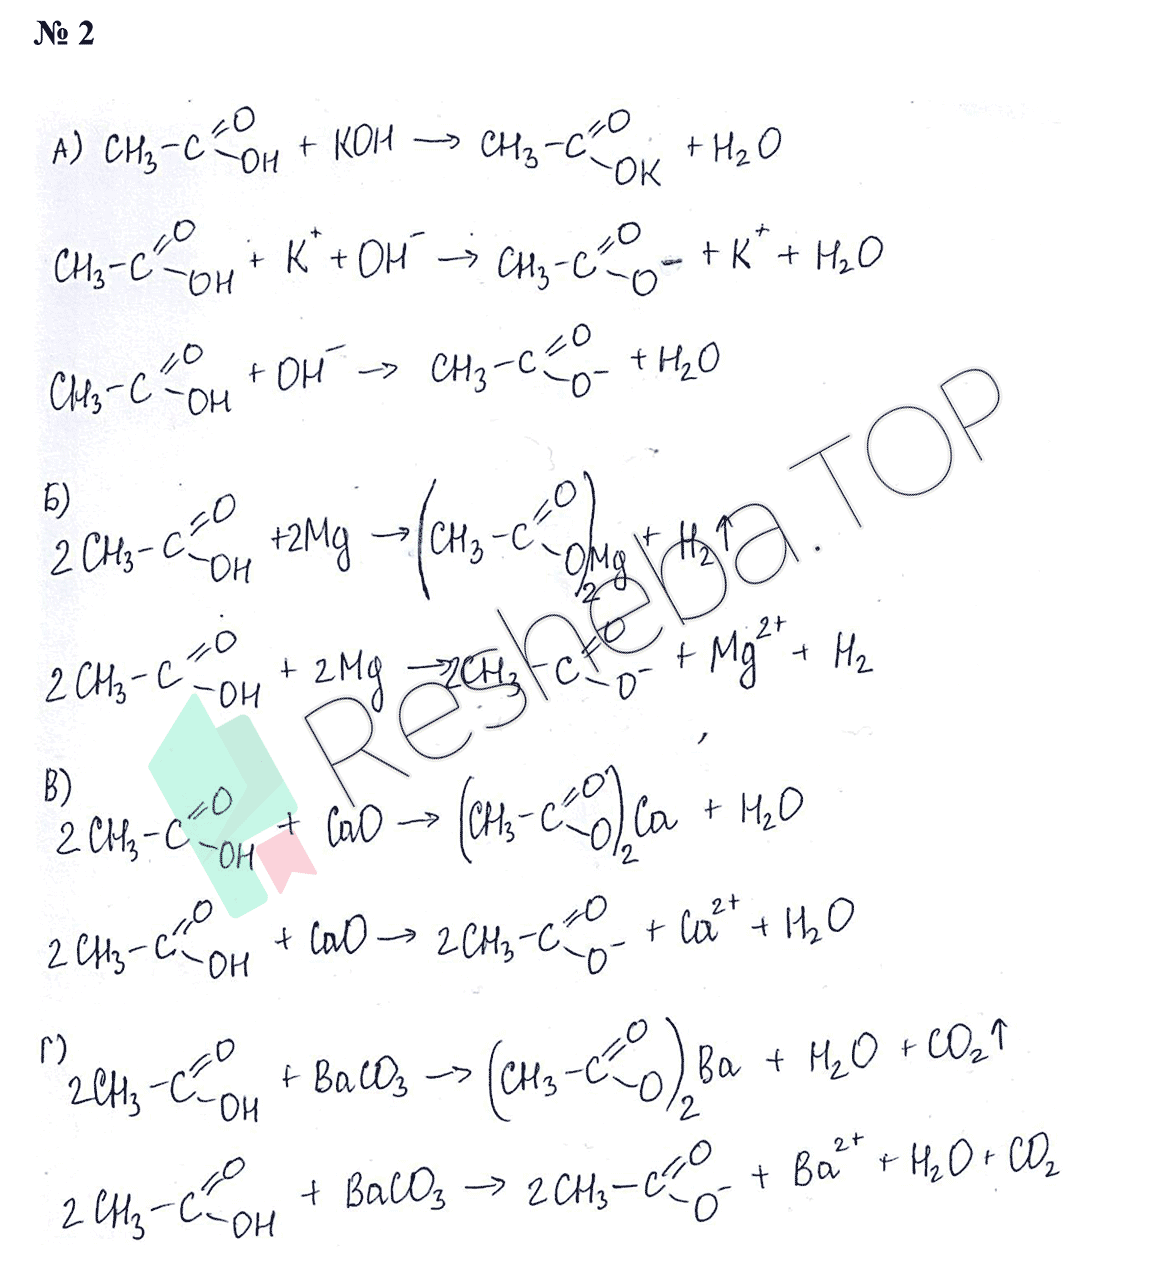 № 2
А) CH₃-C(=O)-OH + KOH → CH₃-C(=O)-OK + H₂O
CH₃-C(=O)-OH + K⁺ + OH⁻ → CH₃-C(=O)-O⁻ + K⁺ + H₂O
CH₃-C(=O)-OH + OH⁻ → CH₃-C(=O)-O⁻ + H₂O
Б)
2CH₃-C(=O)-OH + 2Mg → (CH₃-C(=O)-O)₂Mg + H₂↑
2CH₃-C(=O)-OH + 2Mg → 2CH₃-C(=O)-O⁻ + Mg²⁺ + H₂
В)
2CH₃-C(=O)-OH + CaO → (CH₃-C(=O)-O)₂Ca + H₂O
2CH₃-C(=O)-OH + CaO → 2CH₃-C(=O)-O⁻ + Ca²⁺ + H₂O
Г)
2CH₃-C(=O)-OH + BaCO₃ → (CH₃-C(=O)-O)₂Ba + H₂O + CO₂↑
2CH₃-C(=O)-OH + BaCO₃ → 2CH₃-C(=O)-O⁻ + Ba²⁺ + H₂O + CO₂
Resheba.TOP